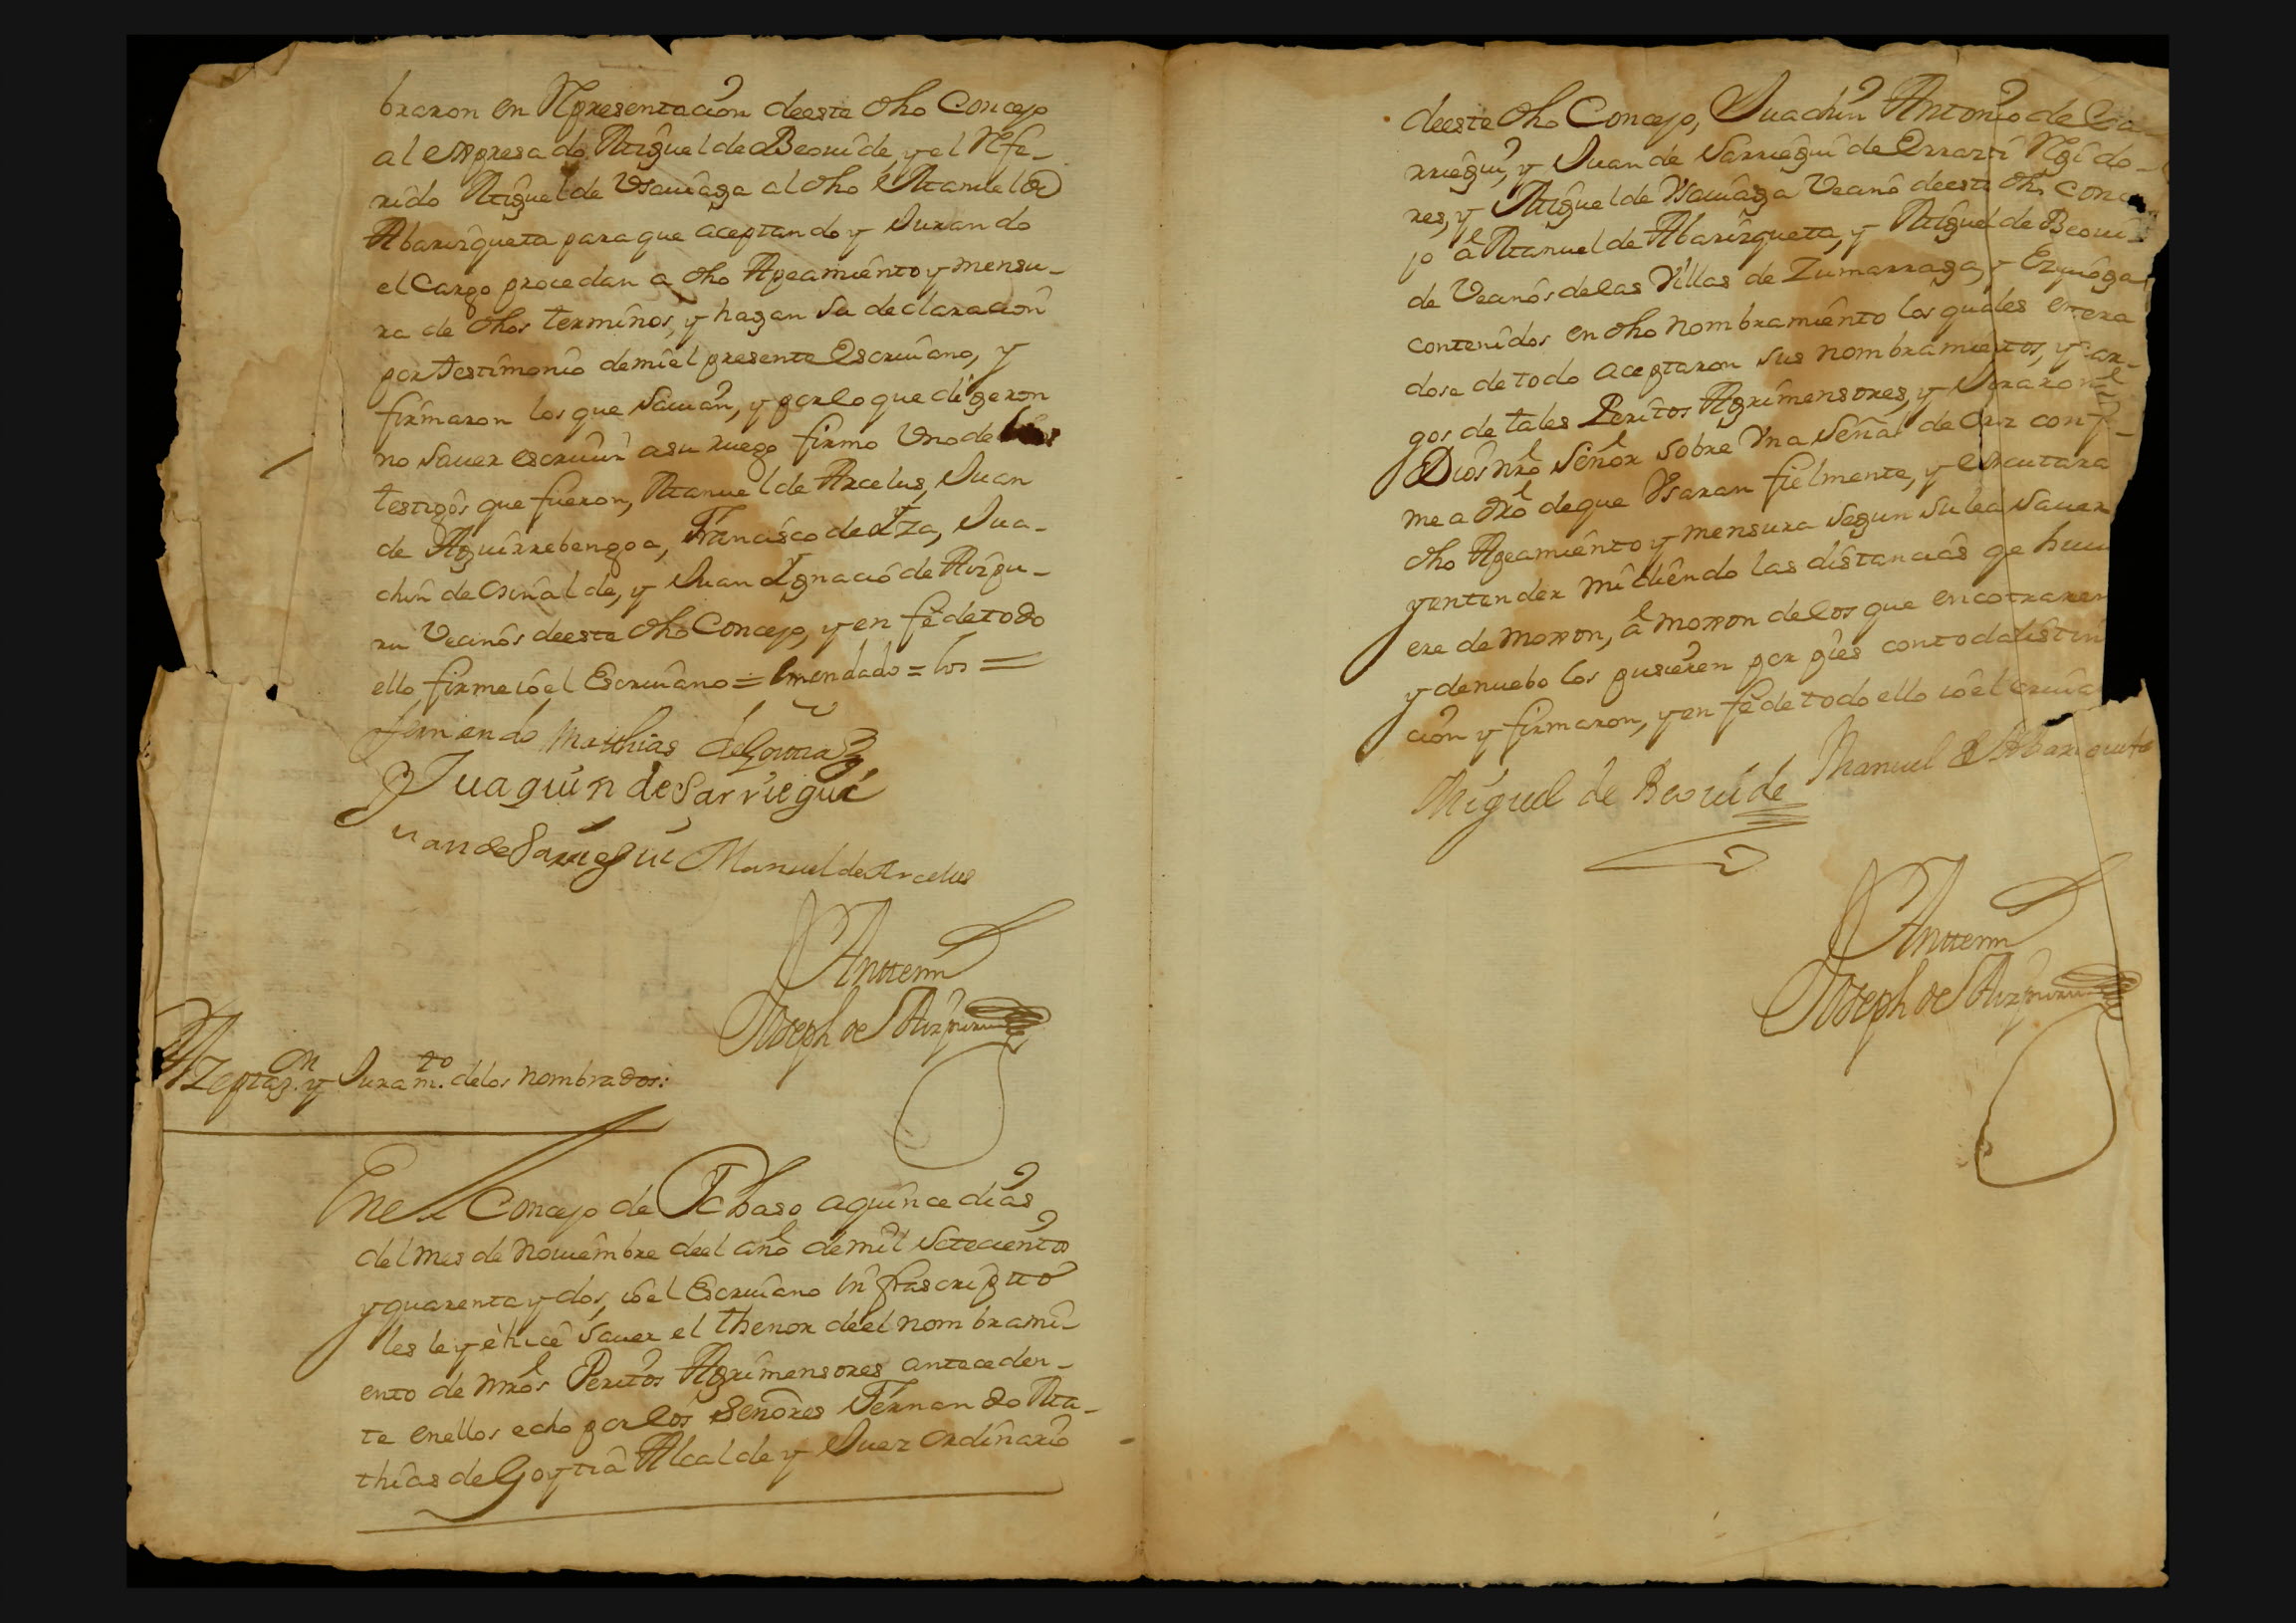 braron en Representacion deeste dho Concejo
al expresado Miguel de Beovide, y el Refe-
rido Miguel de Vsauiaga al dho Manuel de
Abarizqueta para que aceptando y Jurando
el Cargo procedan a dho Apeamiento y mensu-
ra de dhos terminos, y hagan su declaracion
por testimonio de mi el presente Escriuano, y
firmaron los que sauian, y por lo que digeron
no sauer escriuir a su ruego firmo Vno de los
testigos que fueron, Manuel de Arcelus, Juan
de Aguirrebengoa, Francisco de Yza, Jua-
chin de Osinalde, y Juan Ygnacio de Aizpu-
ru Vecinos deeste dho Concejo, y en fe de todo
ello firme io el Escriuano = Emendado = los =
Fernando Mathias de Goitia
Juaquin de Sarriegui
uan de Sarriegui Manuel de Arcelus
Antemi
Joseph de Aizpuru
Azeptaz.on y Juram.to de los nombrados:
En el Concejo de Ichaso a quince dias
del mes de Nouiembre deel año de mil Setecientos
y quarenta y dos, io el Escriuano infrascriptto
les ley è hice sauer el thenor deel nombrami-
ento de nros Peritos Agrimensores anteceden-
te en ellos echo por los Señores Fernando Ma-
thias de Goytia Alcalde y Juez ordinario
deeste dho Concejo, Juachin Antonio de Sa-
rriegui, y Juan de Sarriegui de Errarti Regido-
res, y Miguel de Vsauiaga Vecino deeste dho conce
jo â Manuel de Abarizqueta, y Miguel de Beoui-
de Vecinos de las Villas de Zumarraga, y Ezquioga
contenidos en dho nombramiento los quales entera
dose de todo aceptaron sus nombramientos, y car-
gos de tales Peritos Agrimensores, y Juraron
Dios nro Señor sobre Vna Señal de Cruz confor-
me a dro de que Vsaran fielmente, y executara
dho Apeamiento y mensura segun su lea sauer
y entender midiendo las distancias qe huui
ere de moxon, â moxon de los que encotraren
y denuebo los pusieren por pies con toda distin
cion y firmaron, y en fe de todo ello io el escriua
Miguel de Beovide Manuel de Abarizqueta
Antemi
Joseph de Aizpuru